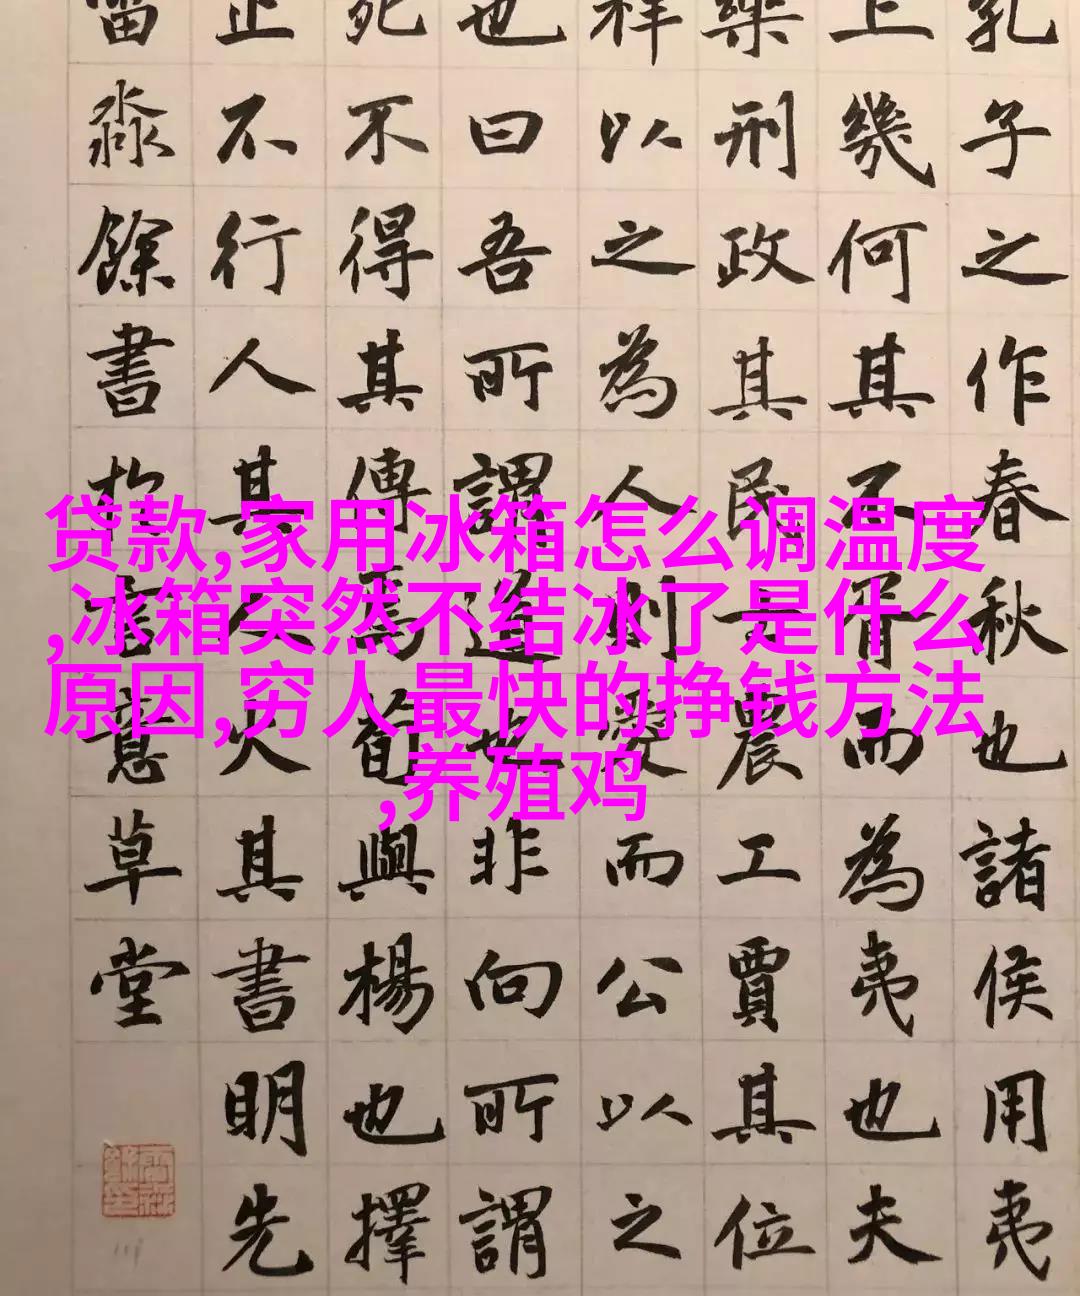 贷款,家用冰箱怎么调温度
,冰箱突然不结冰了是什么
原因,穷人最快的挣钱方法
,养殖鸡
孔子之作春秋也諸侯用夷
上幾何其不胥而為夷也夫
樂刑政其民士農工賈其位
祥以之為人則愛而公以之
也曰吾所謂道也非向所謂
死不得其傳焉荀與楊也擇
止不行人其人火其書明先
淼餘書於意草堂